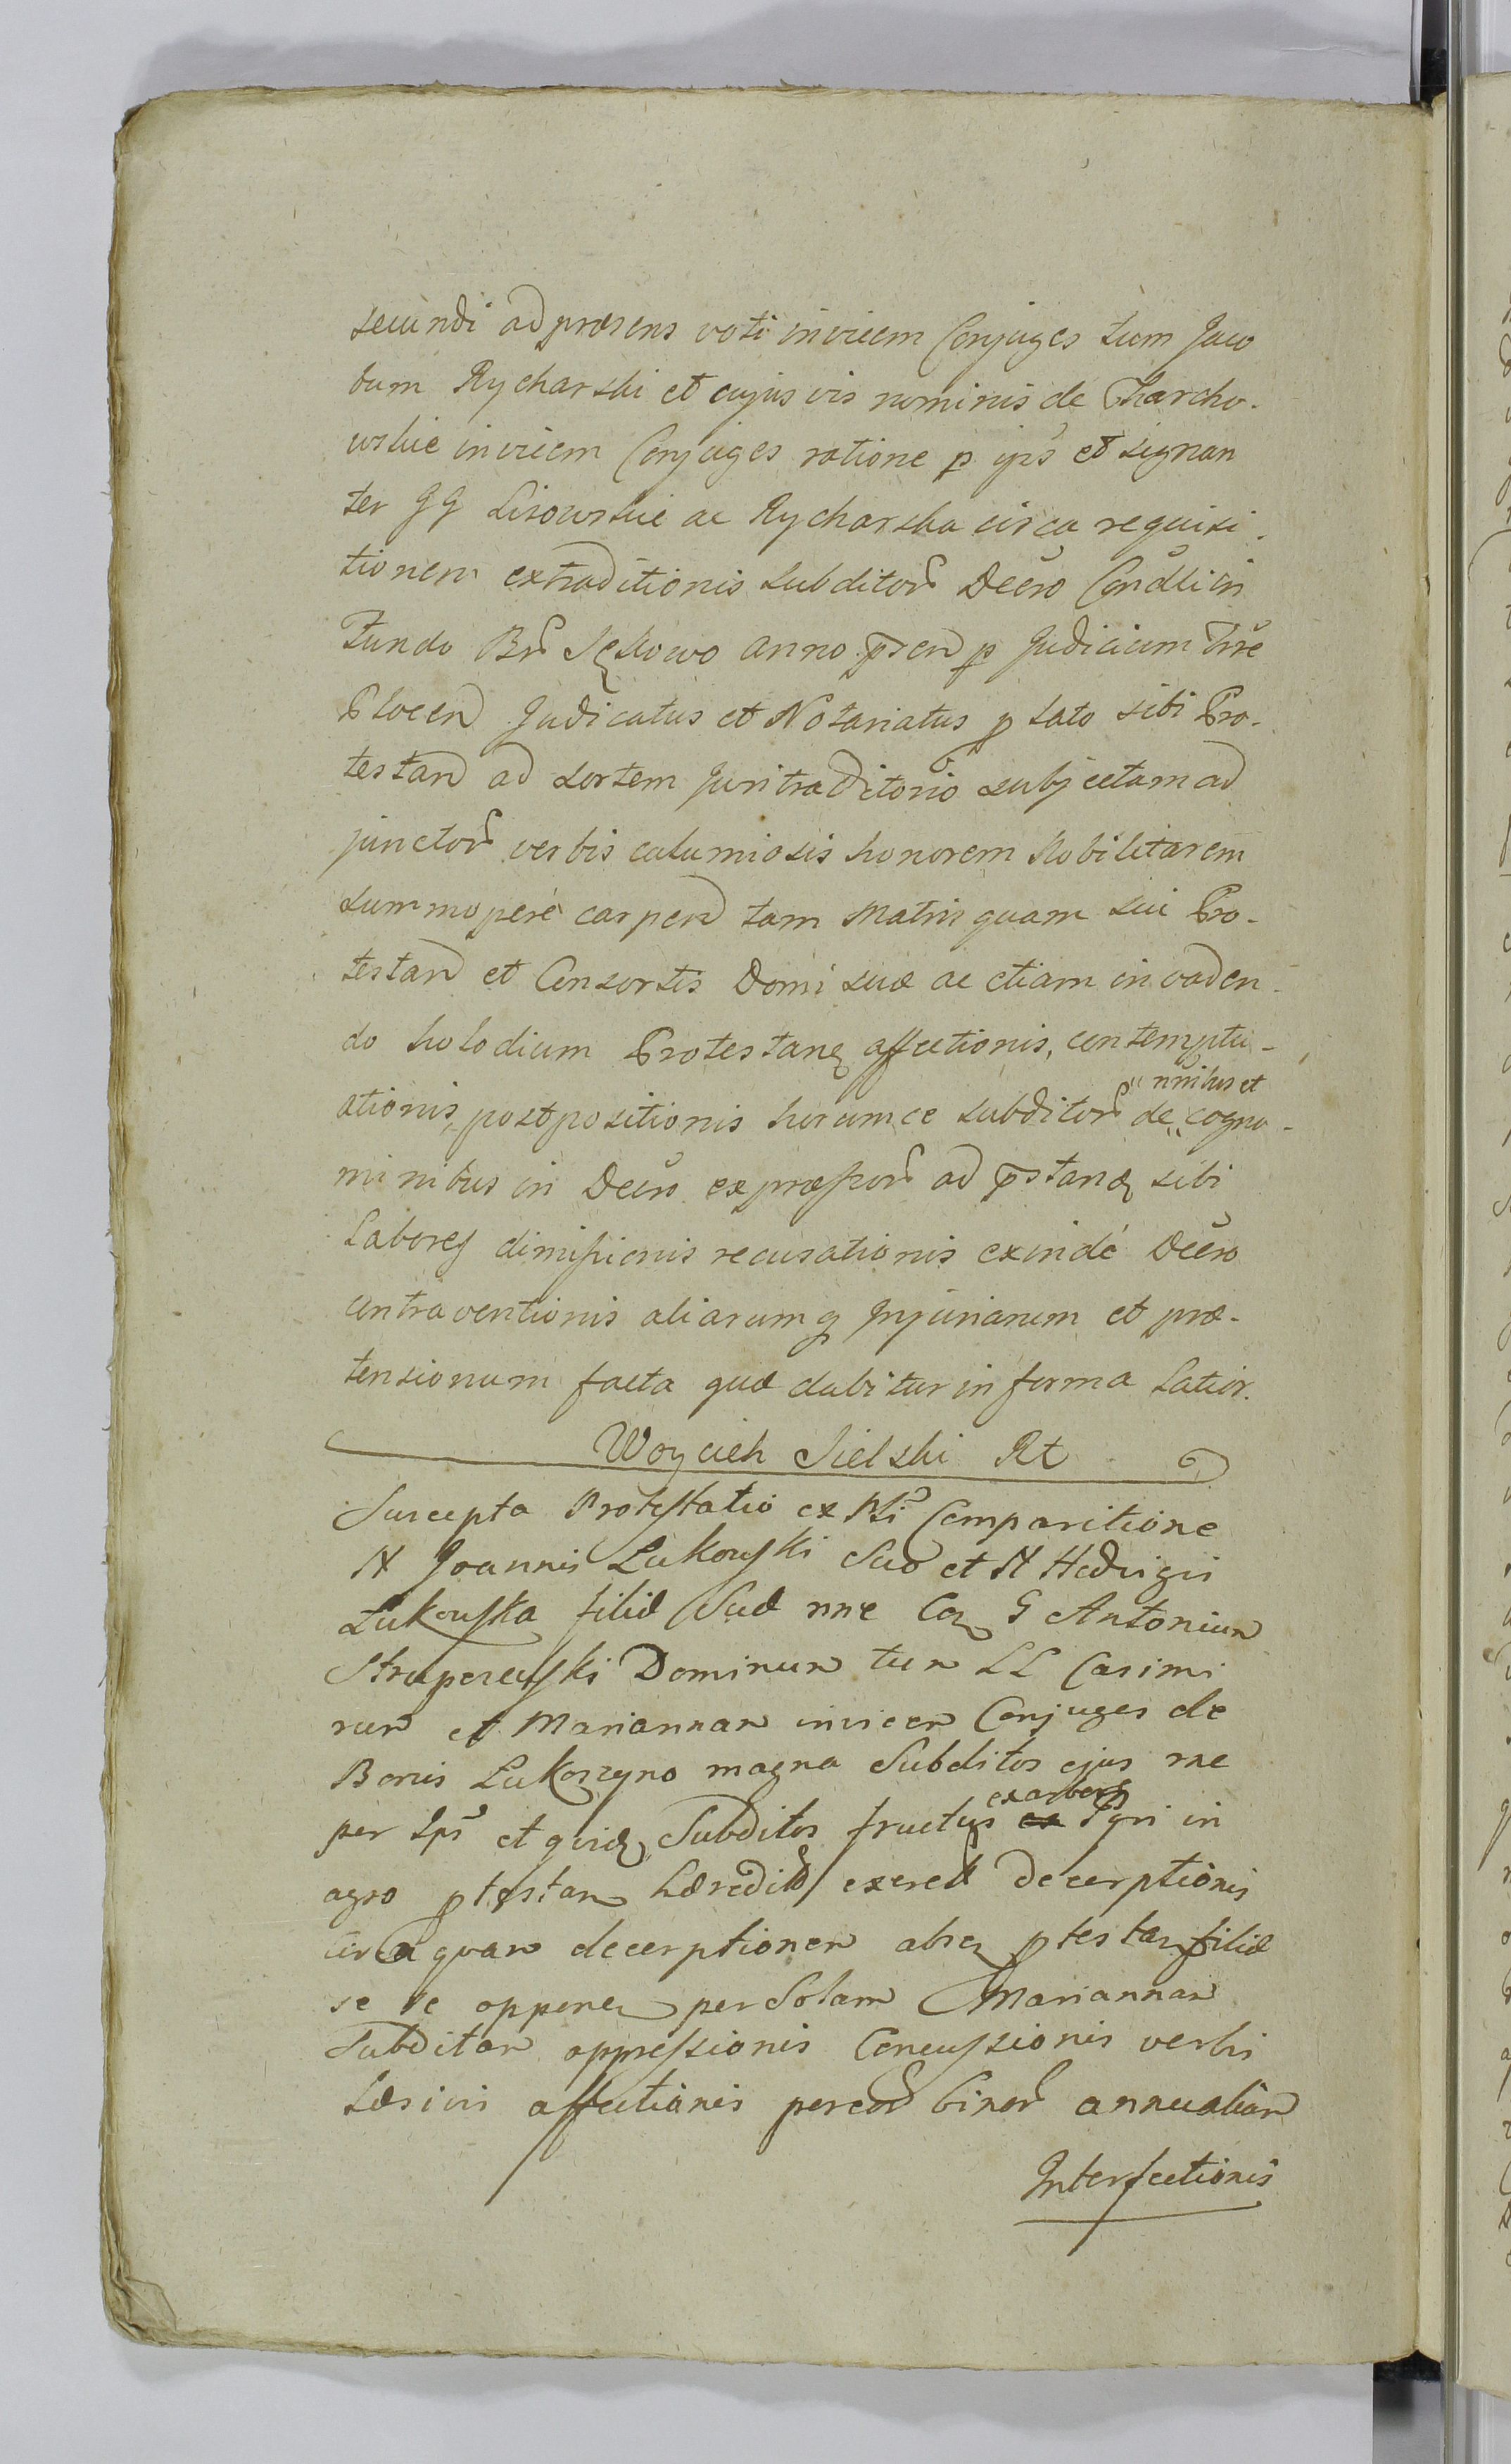 secundi ad præsens voti invicem Conjuges tum Jaco
bum Rycharski et cujus vis nominis de Charcho-
wskie invicem Conjuges ratione p ips et signan
ter GG Lisowskie ac Rycharska circa requisi-
tionem extraditionis subditor Decro Condli in
fundo Br Sękowo anno psen p Judicium Trre
Plocen Judicatus et Notariatus p lato sibi Pro-
testan ad sortem Juri traditorio subjectam ad
junctor verbis calumiosis honorem Nobilitarem
summopere carpen tam Matris quam sui Pro-
testan et Consortis Domi suæ ac etiam invaden-
do holodium Protestanę affectionis, contemptu-
ationis, postpositionis horumce subditor de " nnibus et cogno-
minibus in Decro expressor ad pstandę sibi
Labores dimissionis recusationis exindè Decro
contraventionis aliarumq Injuriarum et præ-
tensionum facta quæ dabitur in forma Latior.
Woyciech Sielski Rt
Suscepta Protestatio ex Psi Comparitione
N Joannis Lukowski Suo et N Hedvigis
Lukowska filiæ Suæ nne Coz G Antonium
Strupczewski Dominum tum LL Casimi
rum et Mariannam invicem Conjuges de
Bonis Lukoszyno magna Subditos ejus rne
per Ips et quidę Subditos fructus ex arbore Pyri in
agro ptestan hæredit exered decerptionis
circa quam decerptionem absę ptestan filiæ
se se oppone per Solam Mariannam
Subditam oppressionis Concussionis verbis
Læsivis affectionis percor binor annualium
Interfectionis